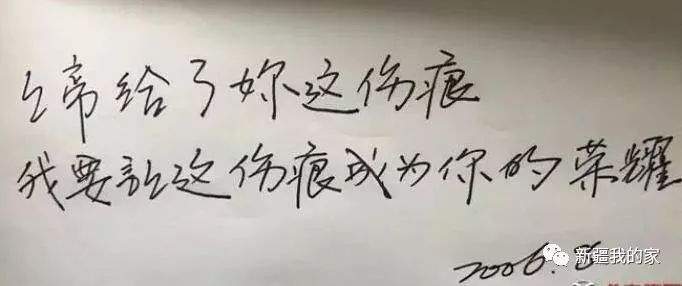 上帝给了妳这伤痕
我要让这伤痕成为你的荣耀
2006.8
新疆我的家